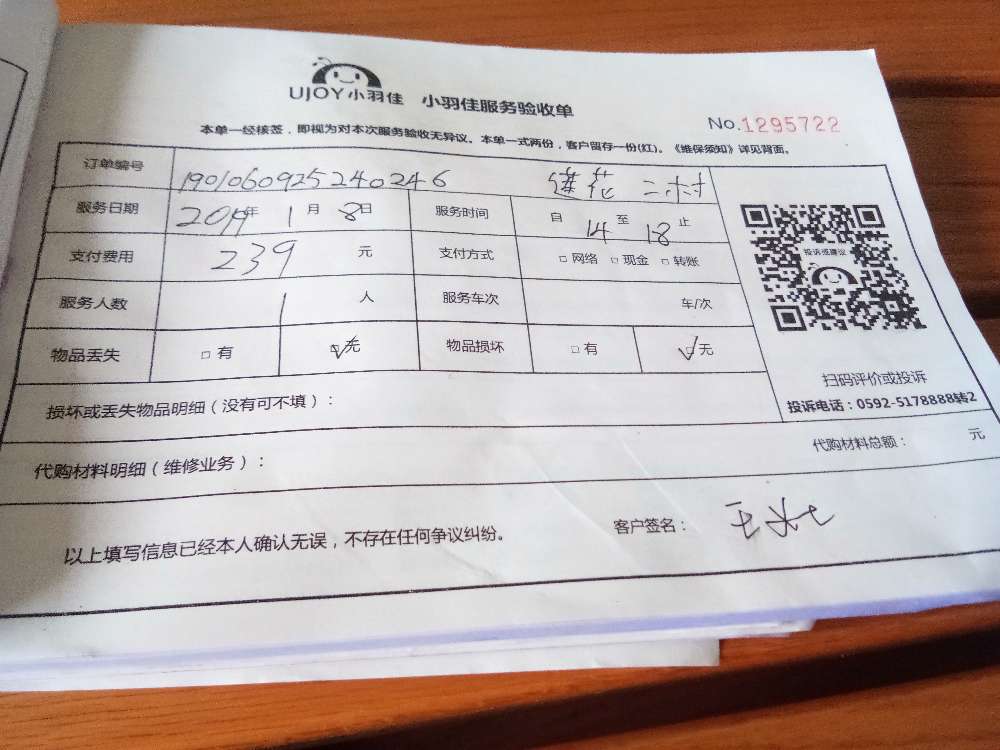 UJOY小羽佳 小羽佳服务验收单
No.1295722
本单一经核签，即视为对本次服务验收无异议。本单一式两份，客户留存一份(红)。《维保须知》详见背面。
订单编号 1901060925240246 莲花二村
服务日期 2019年 1月 8日 服务时间 自 14 至 18 止
支付费用 239 元 支付方式 □网络 □现金 □转账
服务人数 1 人 服务车次 车/次
物品丢失 □有 ☑无 物品损坏 □有 ☑无
投诉或建议
扫码评价或投诉
投诉电话：0592-5178888转2
损坏或丢失物品明细（没有可不填）：
代购材料明细（维修业务）： 代购材料总额： 元
以上填写信息已经本人确认无误，不存在任何争议纠纷。 客户签名： 王